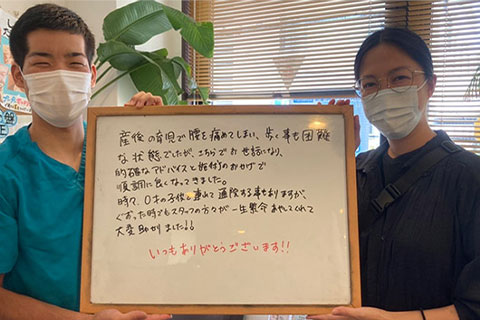 産後の育児で腰を痛めてしまい、歩く事も困難
な状態でしたが、こちらでお世話になり、
的確なアドバイスと施術のおかげで
順調に良くなってきました。
時々、0才の子供を連れて通院する事もありますが、
ぐずった時でもスタッフの方々が一生懸命あやしてくれて
大変助かりました!!
いつもありがとうございます!!